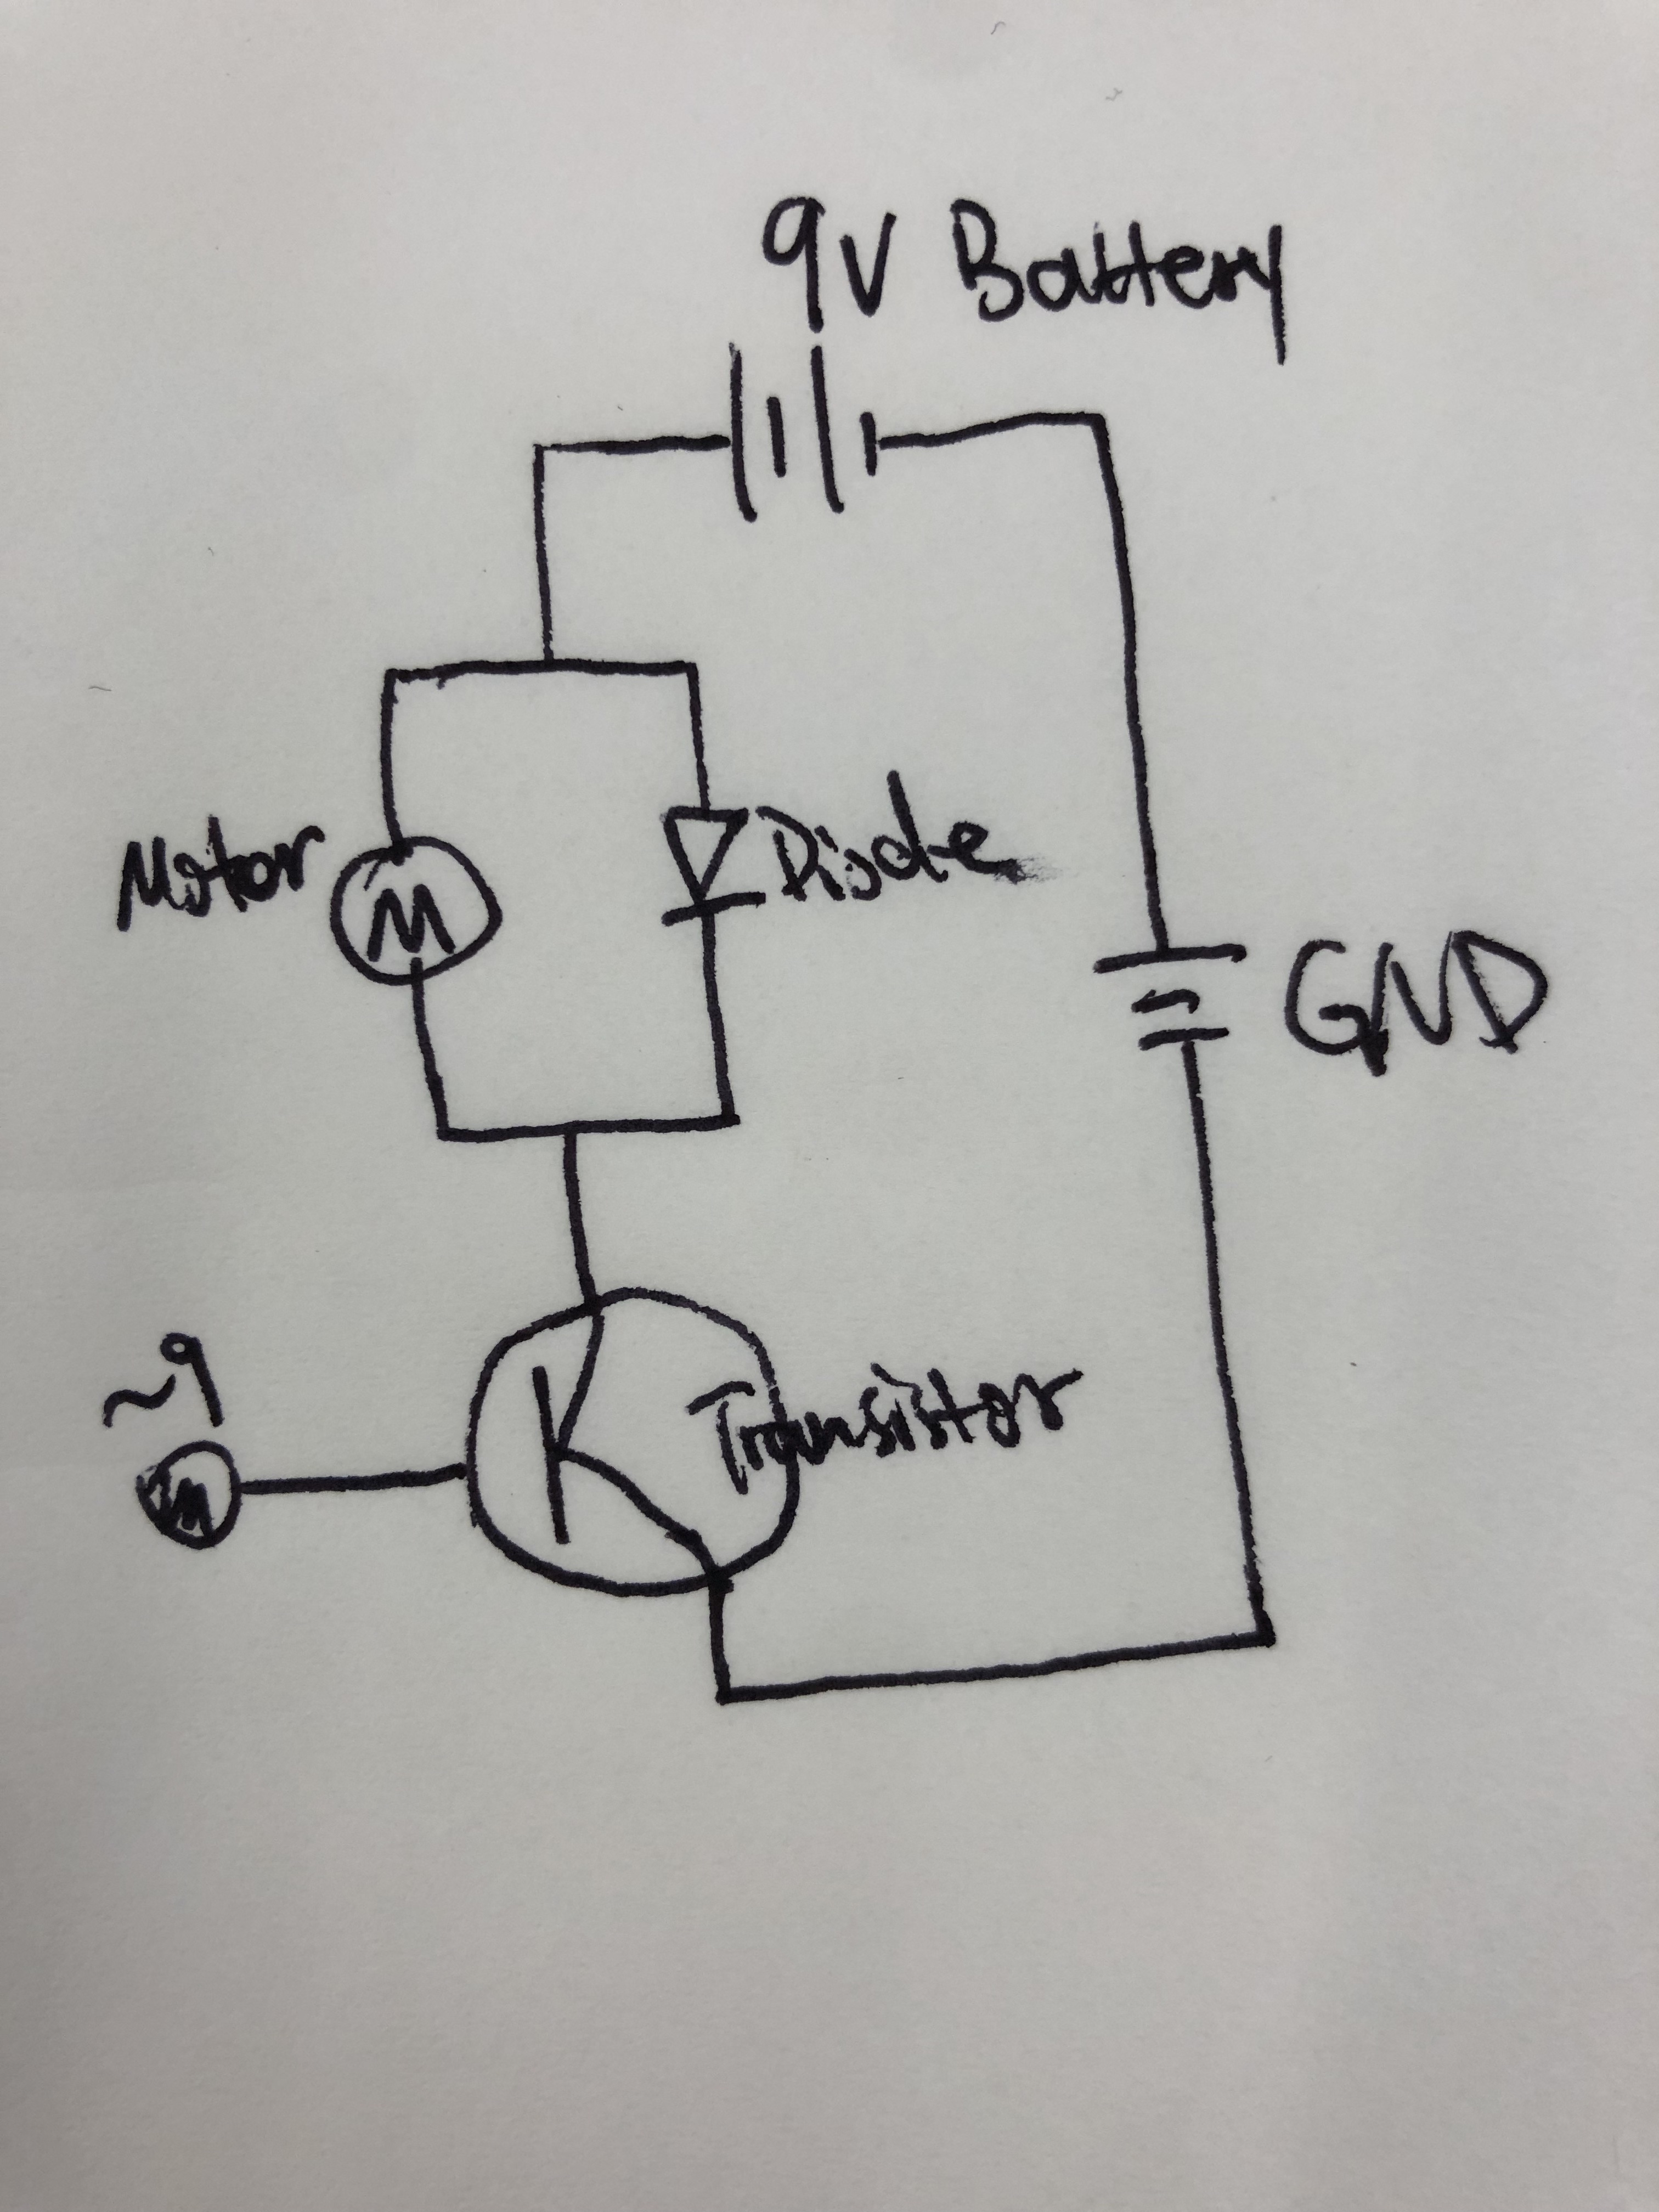 9V Battery
Motor
M
Diode
GND
~9
Transistor